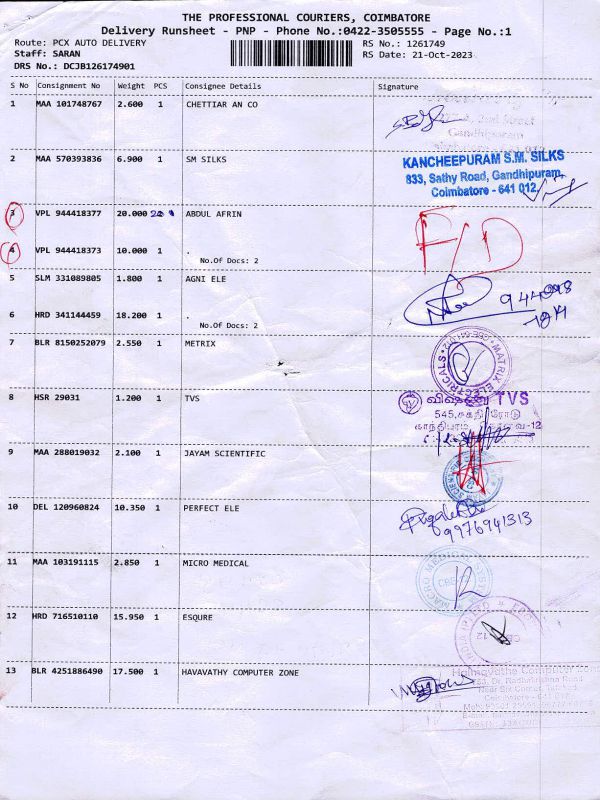 THE PROFESSIONAL COURIERS, COIMBATORE
Delivery Runsheet - PNP - Phone No.:0422-3505555 - Page No.:1
Route: PCX AUTO DELIVERY RS No.: 1261749
Staff: SARAN RS Date: 21-Oct-2023
DRS No.: DCJB126174901
S No Consignment No Weight PCS Consignee Details Signature
1 MAA 101748767 2.600 1 CHETTIAR AN CO
2nd Street
Gandhipuram
2 MAA 570393836 6.900 1 SM SILKS
KANCHEEPURAM S.M. SILKS
833, Sathy Road, Gandhipuram,
Coimbatore - 641 012.
3 VPL 944418377 20.000 1 ABDUL AFRIN
F/D
4 VPL 944418373 10.000 1 .
No.Of Docs: 2
5 SLM 331089805 1.800 1 AGNI ELE
6 HRD 341144459 18.200 1 .
No.Of Docs: 2
7 BLR 8150252079 2.550 1 METRIX
MATRIX ELECTRICALS
8 HSR 29031 1.200 1 TVS
விஷ்ணு TVS
545, சக்தி ரோடு
காந்திபுரம், கோவை-12
9 MAA 288019032 2.100 1 JAYAM SCIENTIFIC
10 DEL 120960824 10.350 1 PERFECT ELE
9976941313
11 MAA 103191115 2.850 1 MICRO MEDICAL
12 HRD 716510110 15.950 1 ESQURE
13 BLR 4251886490 17.500 1 HAVAVATHY COMPUTER ZONE